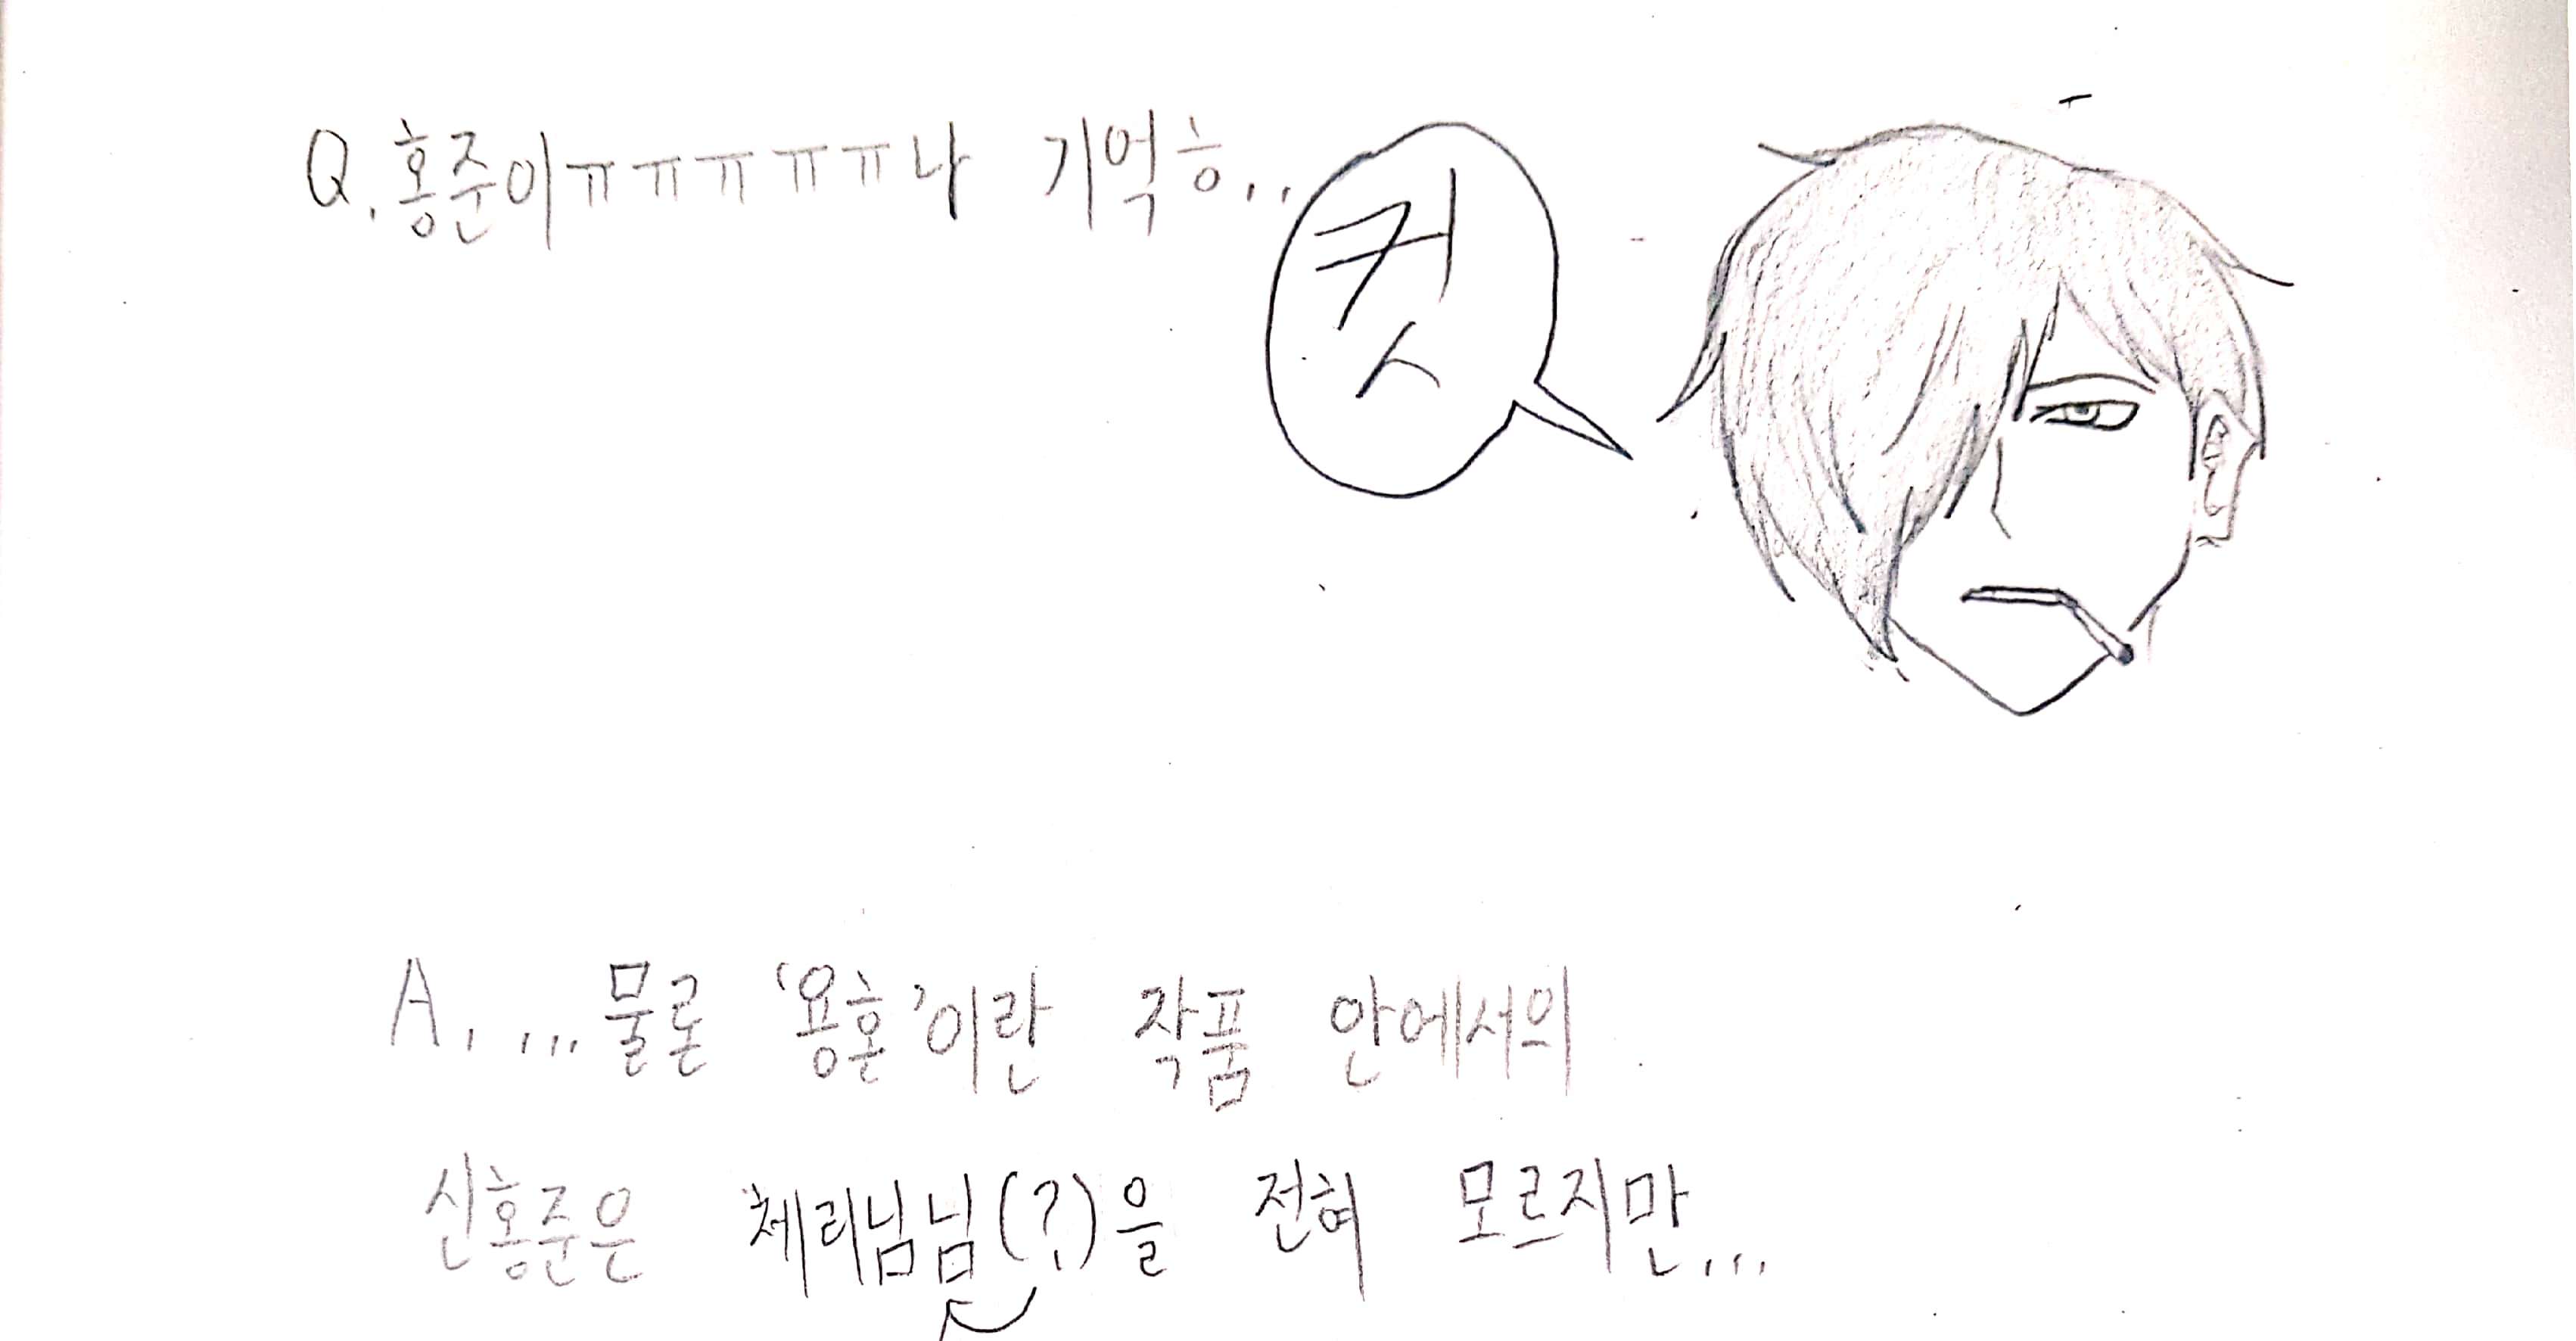 Q.홍준이ㅠㅠㅠㅠㅠ나 기억ㅎ..
컷
A. ...물론 '용혼'이란 작품 안에서의
신홍준은 체리님님(?)을 전혀 모르지만...